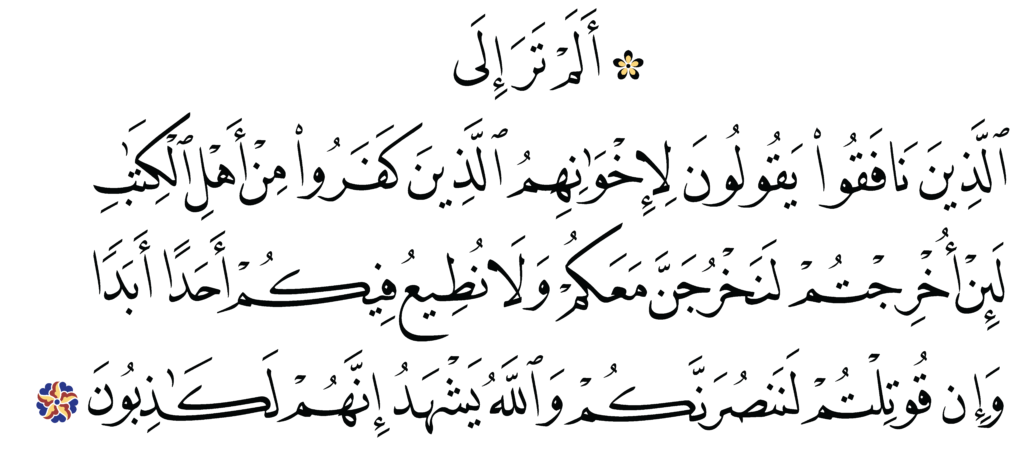 أَلَمْ تَرَ إِلَى
ٱلَّذِينَ نَافَقُوا۟ يَقُولُونَ لِإِخْوَٰنِهِمُ ٱلَّذِينَ كَفَرُوا۟ مِنْ أَهْلِ ٱلْكِتَٰبِ
لَئِنْ أُخْرِجْتُمْ لَنَخْرُجَنَّ مَعَكُمْ وَلَا نُطِيعُ فِيكُمْ أَحَدًا أَبَدًا
وَإِن قُوتِلْتُمْ لَنَنصُرَنَّكُمْ وَٱللَّهُ يَشْهَدُ إِنَّهُمْ لَكَٰذِبُونَ